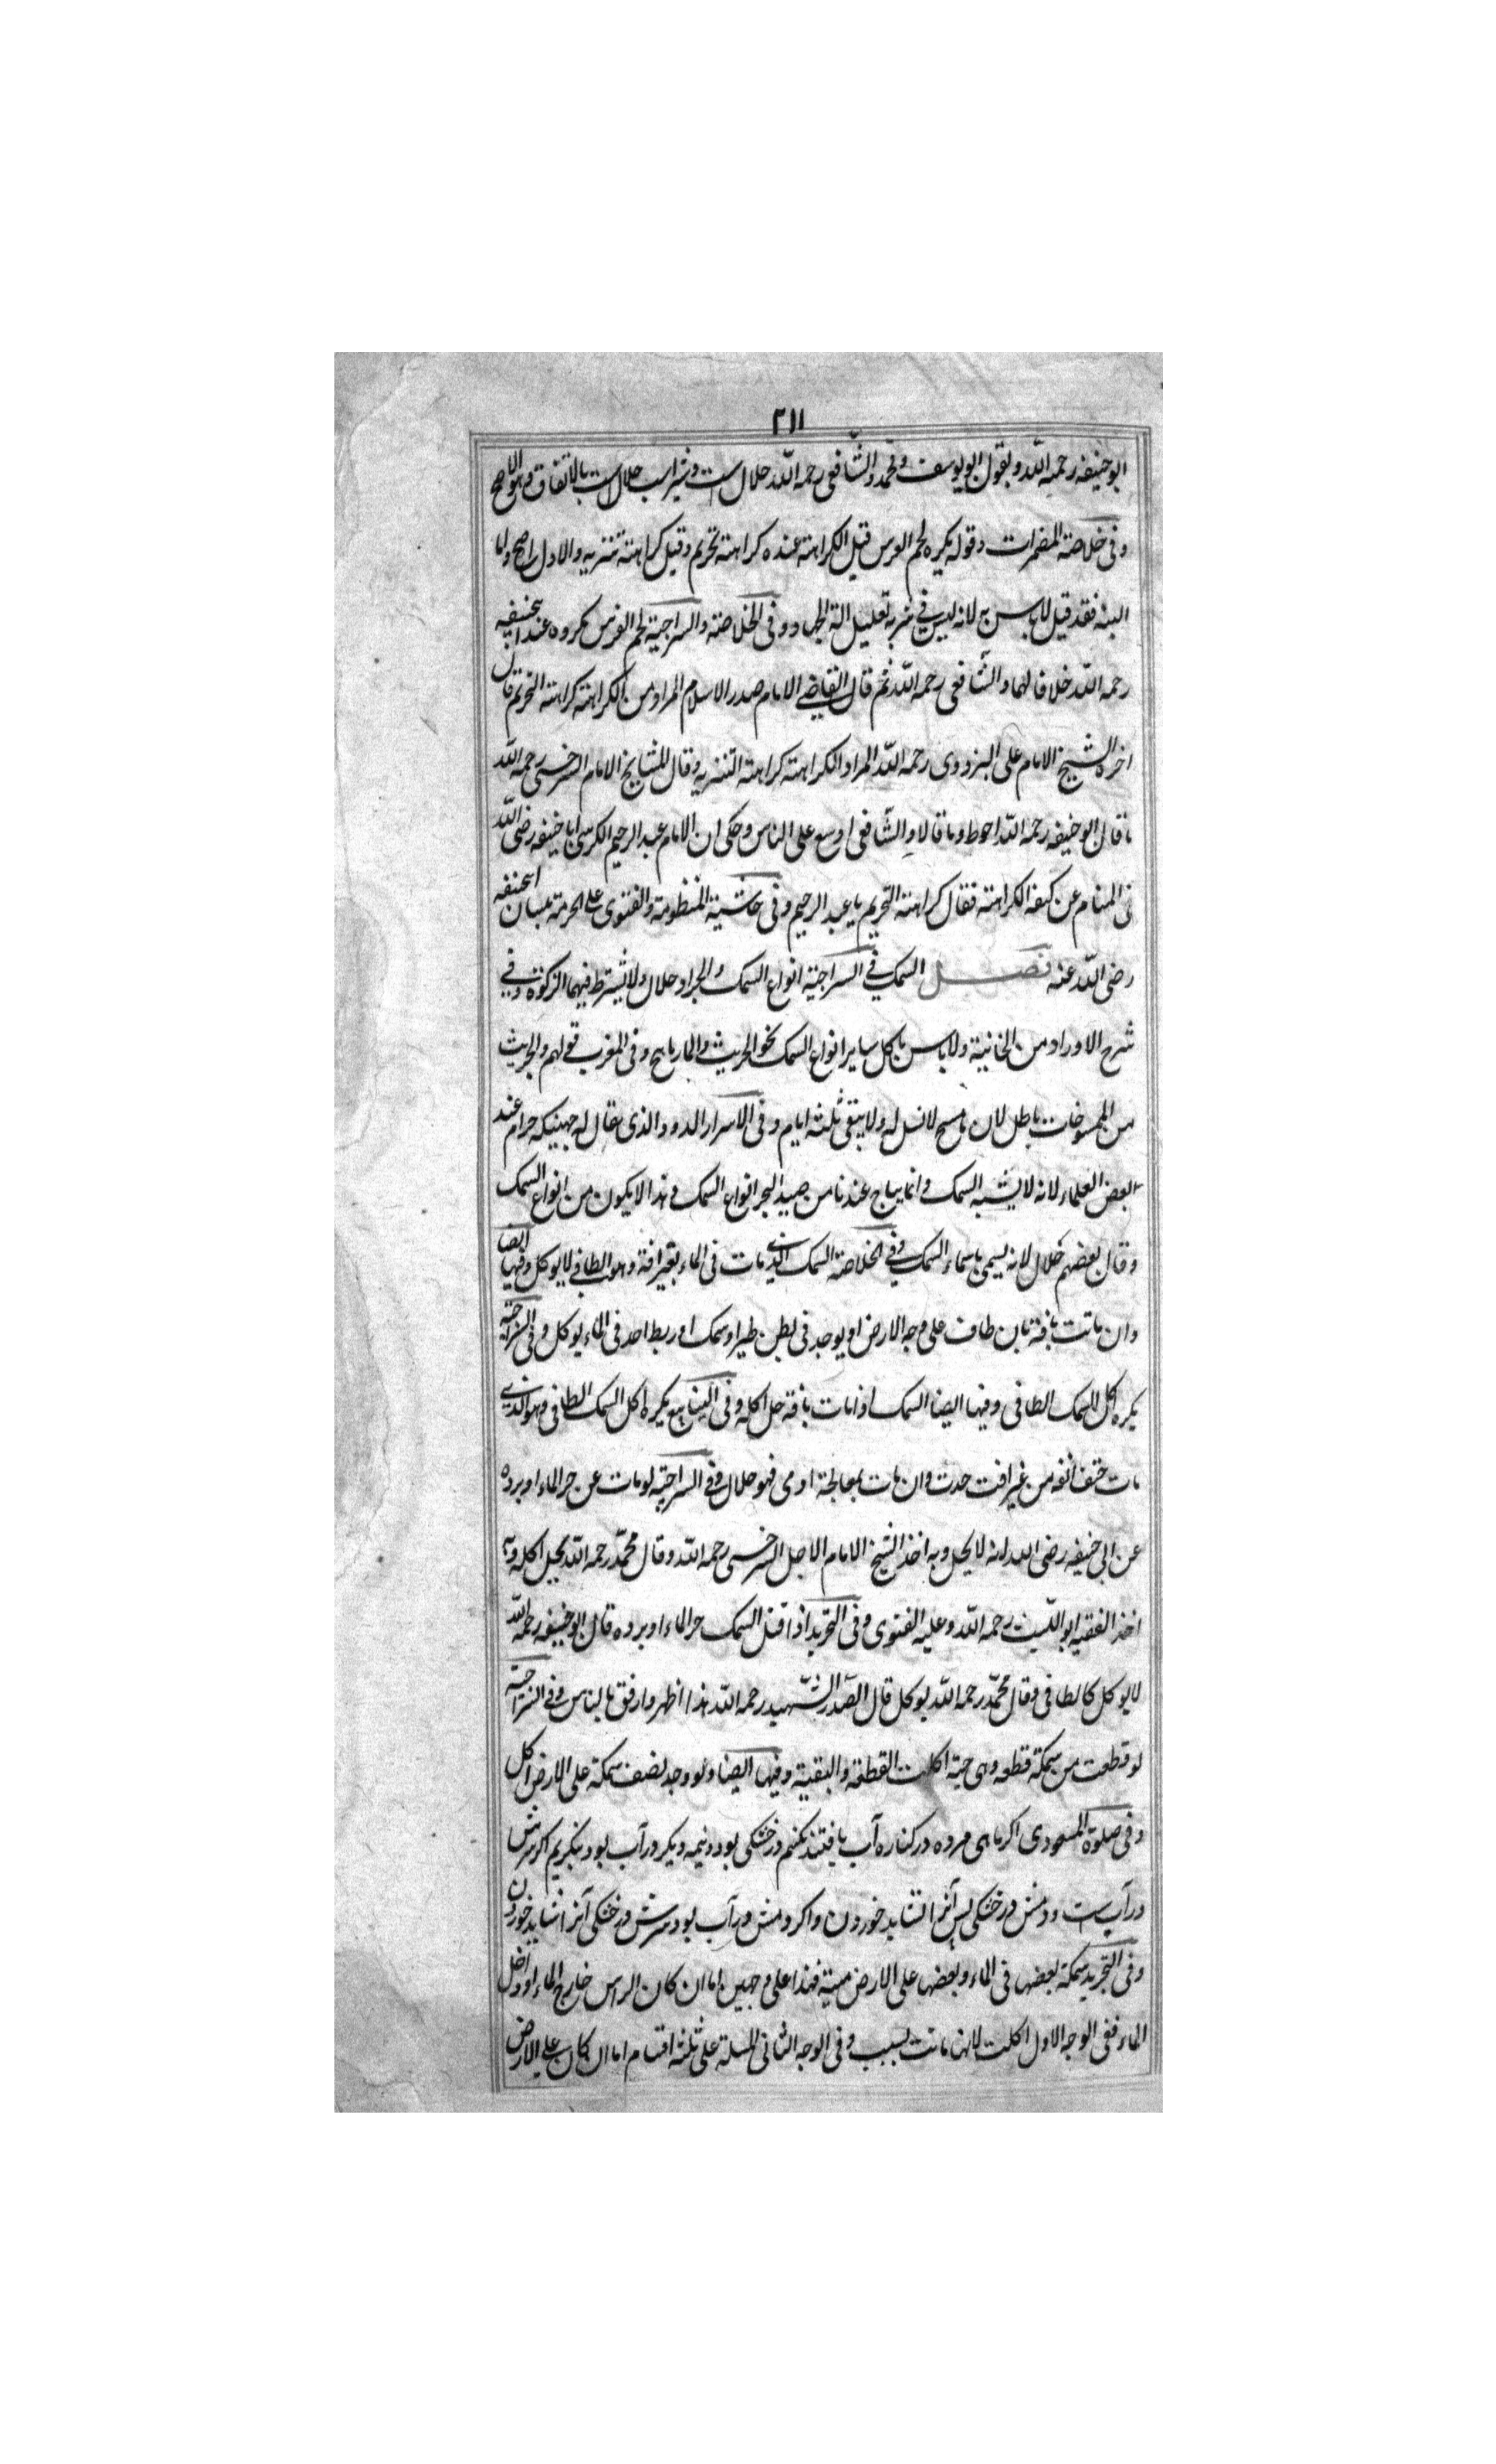 ٢١١
ابو حنیفه رحمه الله و بقول ابو یوسف و محمد و الشافعی رحمه الله حلال است و شیر اسب حلال است بالاتفاق و هو الاصح
و فی خلاصة المضمرات و قوله یکره لحم الفرس قیل الکراهته عنده کراهته تحریم و قیل کراهته تنزیه و الاول اصح و اما
البنه فقد قیل لاباس به لانه لیس فی شربه تعلیل الة الجهاد و فی الخلاصة و السراجیة لحم الفرس مکروه عند ابیحنیفه
رحمه الله خلافا لهما و الشافعی رحمه الله ثم قال القاضے الامام صدر الاسلام المراد من الکراهته کراهته التحریم قال
اخوه الشیخ الامام علی البزدوی رحمه الله المراد الکراهته کراهته التنزیه و قال للشایخ الامام السرخسی رحمه الله
ما قال ابو حنیفه رحمه الله احوط و ما قالا و الشافعی اوسع علی الناس و حکی ان الامام عبد الرحیم الکرسی ابا حنیفه رضی الله
فی المنام عن کیفه الکراهته فقال کراهته التحریم یا عبد الرحیم و فی حاشیة المنظومة و الفتوی علی الحرمة بسان ابیحنفه
رضی الله عنه فصل السمک فی السراجیة انواع السمک و الجراد حلال و لا یشترط فیهما الزکوة و فی
شرح الاوراد من الخانیة و لاباس باکل سایر انواع السمک نحو الجریث و المارماهج و فی المغرب قولهم و الجریث
من الممسوخات باطل لان ما مسخ لا نسل له و لا یبقی ثلثه ایام و فی الاسرار الدود الذی یقال له جهنیکه حرام عند
بعض العلماء لانه لا یشبه السمک و انما یباح عندنا من صید البحر انواع السمک و هذا لا یکون من انواع السمک
و قال بعضهم حلال لانه یسمی باسماء السمک و فی الخلاصة السمک الذی مات فی الماء بغیر افة و هو الطافی لا یوکل و فیها ایضا
و ان ماتت بافة بان طاف علی وجه الارض او یوجد فی بطن طیر او سمک او ربط احد فی الماء یوکل و فی السراجیة
یکره اکل السمک الطافی و فیها ایضا السمک اذا مات بافة حل اکله و فی الینابیع یکره اکل السمک الطافی و هو الذی
مات حتف انفه من غیر افت حدث و ان مات بمعالجة ادمی فهو حلال و فی السراجیة لو مات عن حر الماء او برده
عن ابی حنیفه رضی الله انه لا یحل و به اخذ الشیخ الامام الاجل السرخسی رحمه الله و قال محمد رحمه الله یحل اکله و به
اخذ الفقیه ابو اللیث رحمه الله و علیه الفتوی و فی التجرید اذا قتل السمک حر الماء او برده قال ابو حنیفه رحمه الله
لا یوکل کالطافی و قال محمد رحمه الله یوکل قال الصدر الشهید رحمه الله هذا اظهر و ارفق بالناس و فی السراجیة
لو قطعت من سمکة قطعه و هی حیة اکلت القطعة و البقیة و فیها ایضا و لو وجد نصف سمکة علی الارض اکل
و فی صلوة المسعودی اکر ماهی مرده در کناره آب یافتند نکنم در خشکی بود و نیمه دیکر در آب بود بنکریم اکر سرش
در آب ست و دمش در خشکی پس آنرا نشاید خوردن و اکر دمش در آب بود و سرش در خشکی آنرا شاید خوردن
و فی التجرید سمکة بعضها فی الماء و بعضها علی الارض میتة فهذا علی وجهین اما ان کان الراس خارج الماء او داخل
الماء ففی الوجه الاول اکلت لانها ماتت بسبب و فی الوجه الثانی المسئلة علی ثلثه اقسام اما ان کان علی الارض